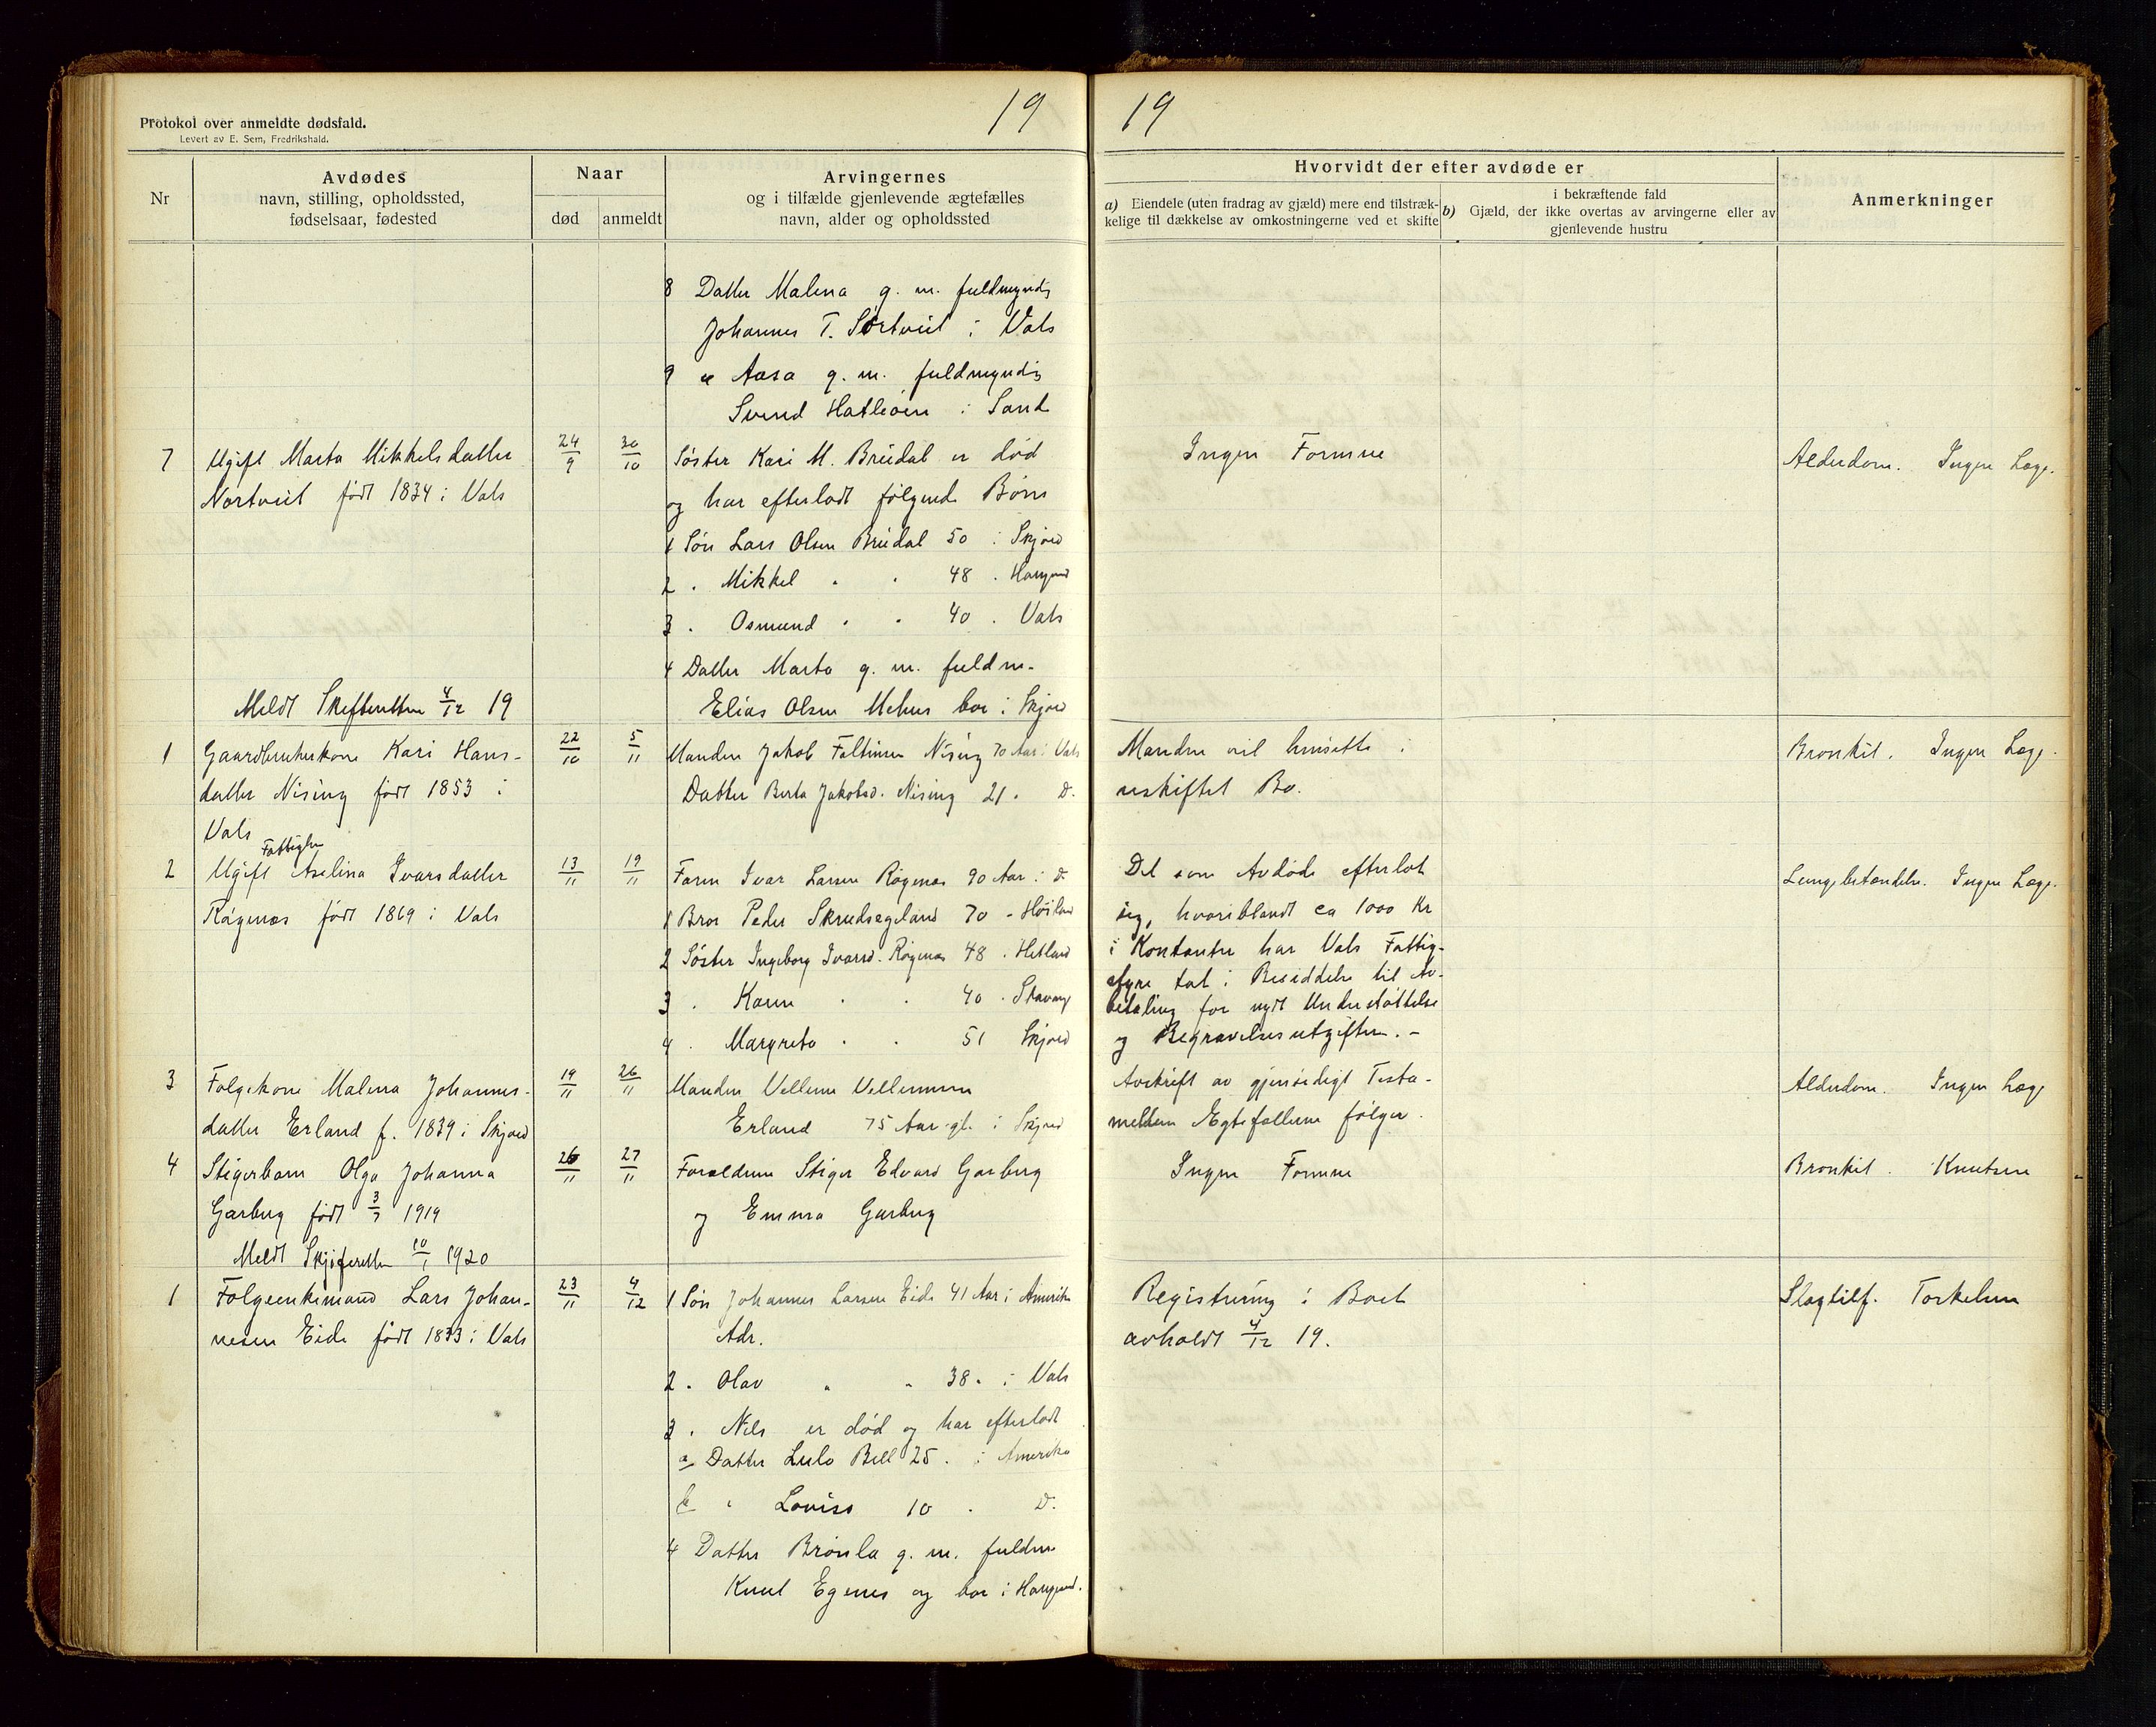 Protokol over anmeldte dødsfald.
Levert av E. Sem, Fredrikshald.
19
19
Nr
Avdødes
navn, stilling, opholdssted,
fødselsaar, fødested
Naar
død
anmeldt
Arvingernes
og i tilfælde gjenlevende ægtefælles
navn, alder og opholdssted
Hvorvidt der efter avdøde er
a) Eiendele (uten fradrag av gjæld) mere end tilstræk-
kelige til dækkelse av omkostningerne ved et skifte
i bekræftende fald
b) Gjæld, der ikke overtas av arvingerne eller av
gjenlevende hustru
Anmerkninger
8 Datter Malena g. m. fuldmyndig
Johannes T. Sørtveit i Vats
9 " Aasa g. m. fuldmyndig
Svend Hatleøen i Sand
7 Ugift Marta Mikkelsdatter
Nortveit født 1834 i Vats
24/9
30/10
Søster Kari M. Breidal er død
og har efterladt følgende Børn
1 Søn Lars Olsen Breidal 50 i Skjold
2 " Mikkel " " 48 "
3 " Osmund " " 40 " Vats
4 Datter Marta g. m. fuldm.
Elias Olsen Mehus bor i Skjold
Ingen Formue
Alderdom. Ingen Læge.
Meldt Skifteretten 4/12 19
1 Gaardbrukerkone Kari Hans-
datter Nising født 1853 i
Vats
22/10
5/11
Manden Jakob Faltinsen Nising 70 Aar i Vats
Datter Berta Jakobsd. Nising 21 " D.
Manden vil hensitte i
uskiftet Bo.
Bronkit. Ingen Læge.
Fattiglem
2 Ugift Aselina Ivarsdatter
Røgenes født 1869 i Vats
13/11
19/11
Faren Ivar Larsen Røgenes 90 Aar i D
1 Bror Peder Skrudsegeland 70 "
2 Søster Ingeborg Ivarsd. Røgenes 48 " Hetland
3 " Karen " " 40 " Stavang
4 " Margreta " " 51 Skjold
Det som Avdøde efterlot
sig, hvoriblandt ca 1000 Kr
i Kontanter har Vats Fattig-
styre tat i Besiddelse til Av-
betaling for nydt Understøttelse
og Begravelsesutgifter. -
Lungebetændelse. Ingen Læge.
3 Folgekone Malena Johannes-
datter Erland f. 1839 i Skjold
19/11
26/11
Manden Vellem Vellemsen
Erland 75 Aar gl. i Skjold
Avskrift av gjensidigt Testa-
mellem Egtefællerne følger.
Alderdom. Ingen Læge
4 Stigerbarn Olga Johanna
Garberg født 3/7 1919
26/11
27/11
Forældrene Stiger Edvard Garberg
og Emma Garberg
Ingen Formue
Bronkit. Knutsen
Meldt Skifteretten 10/1 1920
1 Folgeenkemand Lars Johan-
nesen Eide født 1833 i Vats
23/11
4/12
1 Søn Johannes Larsen Eide 41 Aar i Amerika
Adr.
2 " Olav " " 38 " i Vats
3 " Nels er død og har efterladt
a Datter Lulo Bell 25 " i Amerika
b " Loviso 10 " D.
4 Datter Brønla g. m. fuldm
Knut Egenes og bor i
Registrering i Boet
avholdt 4/12 19.
Slagtilf. Torkelsen